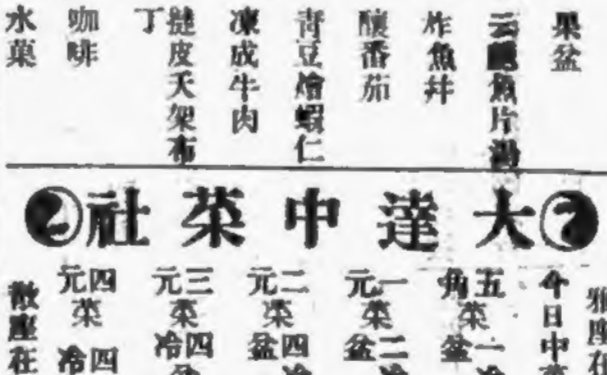 果盆
魚片湯
炸魚丼
釀番茄
青豆燴蝦仁
凍成牛肉
撻皮天架布丁
咖啡
水菓
大達中菜社
雅座在
今日中菜
五角菜 一冷盆
一元菜 二冷盆
二元菜 四冷盆
三元菜 四冷盆
四元菜 四冷
散座在